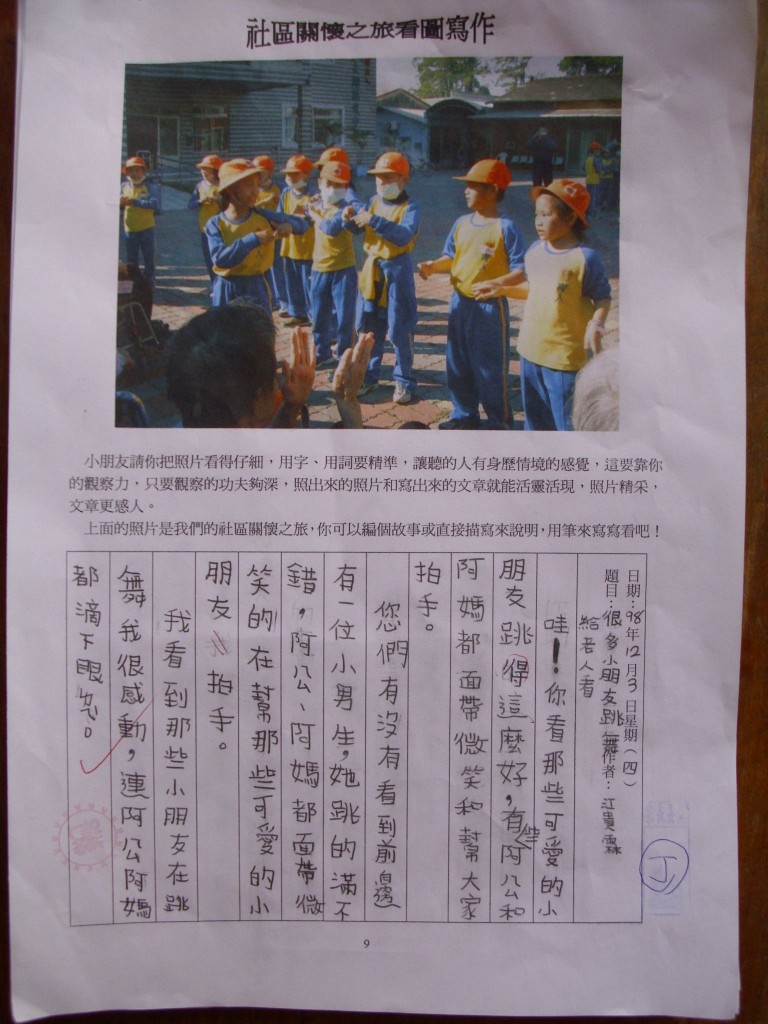 社區關懷之旅看圖寫作
小朋友請你把照片看得仔細，用字、用詞要精準，讓聽的人有身歷情境的感覺，這要靠你
的觀察力，只要觀察的功夫夠深，照出來的照片和寫出來的文章就能活靈活現，照片精采，
文章更感人。
上面的照片是我們的社區關懷之旅，你可以編個故事或直接描寫來說明，用筆來寫寫看吧！
日期：98年12月3日星期（四）
題目：很多小朋友跳舞給老人看
作者：江貴霖
哇！你看那些可愛的小
朋友跳得這麼好，有些阿公和
阿媽都面帶微笑和幫大家
拍手。
您們有沒有看到前邊
有一位小男生，她跳的滿不
錯，阿公、阿媽都面帶微
笑的在幫那些可愛的小
朋友拍手。
我看到那些小朋友在跳
舞我很感動，連阿公阿媽
都滴下眼淚。
9